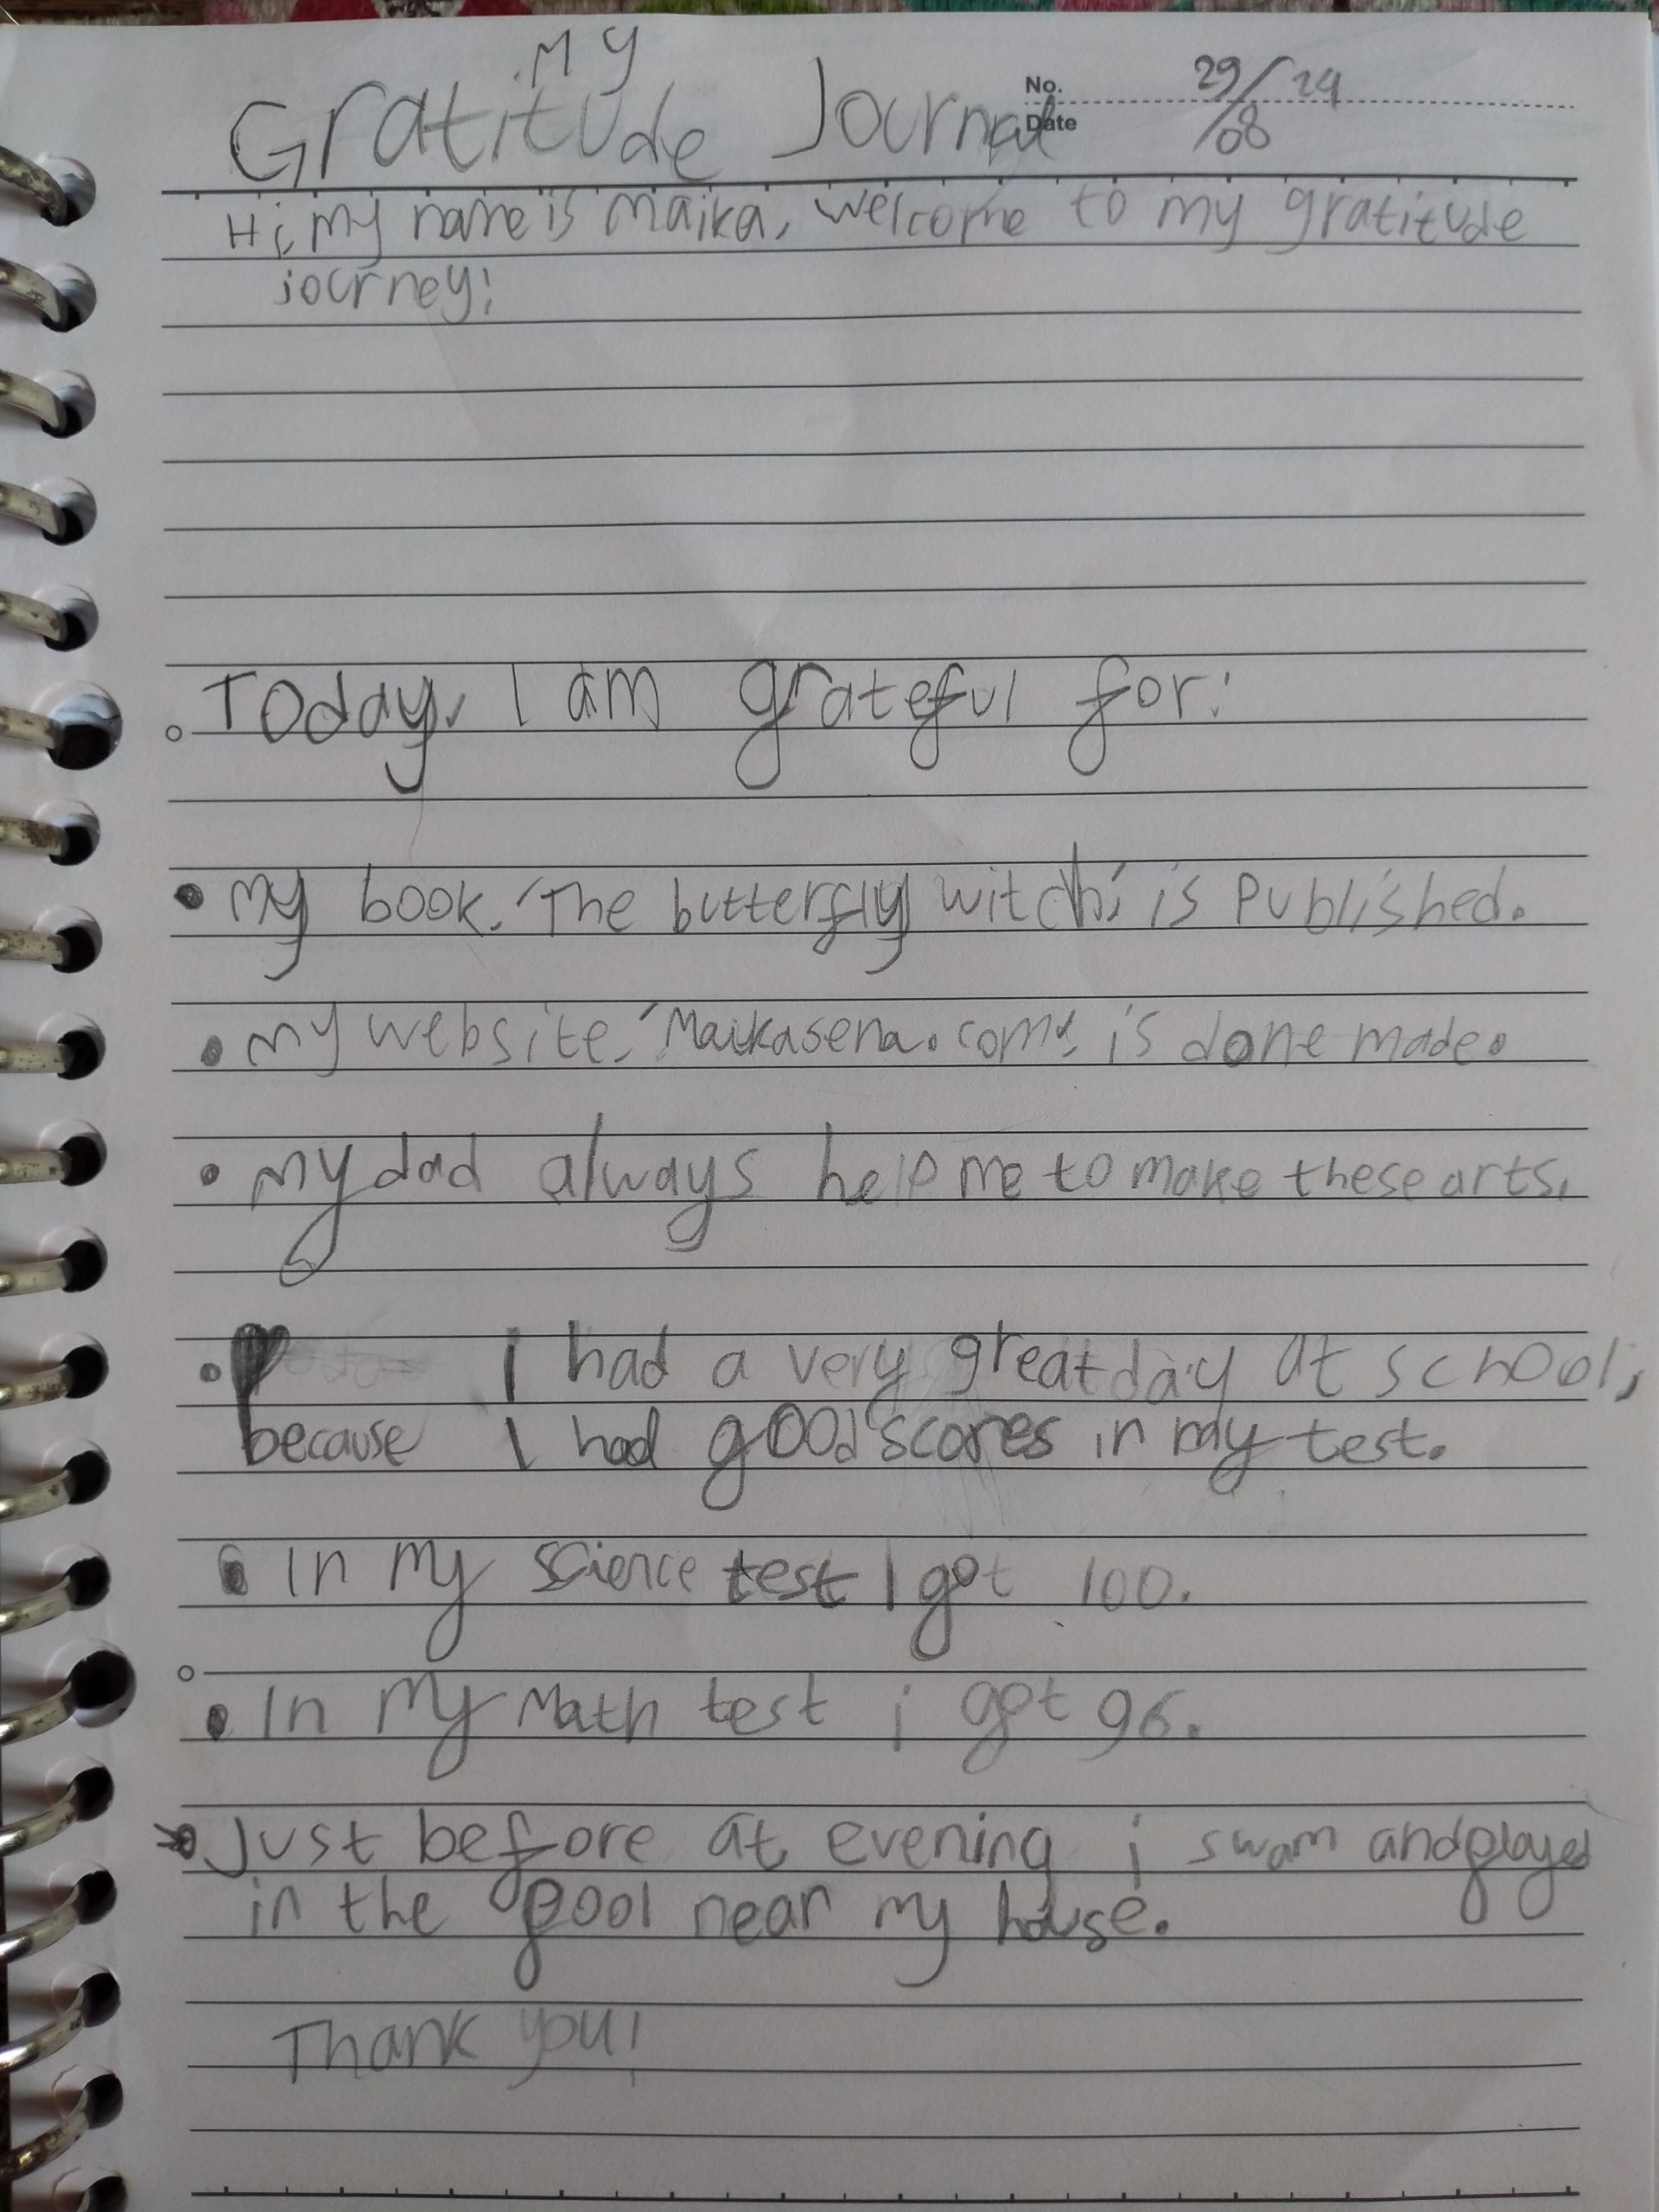 My
Gratitude Journal
No.
Date
29/08 24
Hi, my name is Maika, welcome to my gratitude
journey!
Today, I am grateful for:
• my book, 'The butterfly witch', is published.
• my website, 'Maikasena.com', is done made.
• my dad always help me to make these arts.
• I had a very great day at school,
because I had good scores in my test.
• In my science test I got 100.
• In my Math test i got 96.
• Just before at evening i swam and played
in the pool near my house.
Thank you!